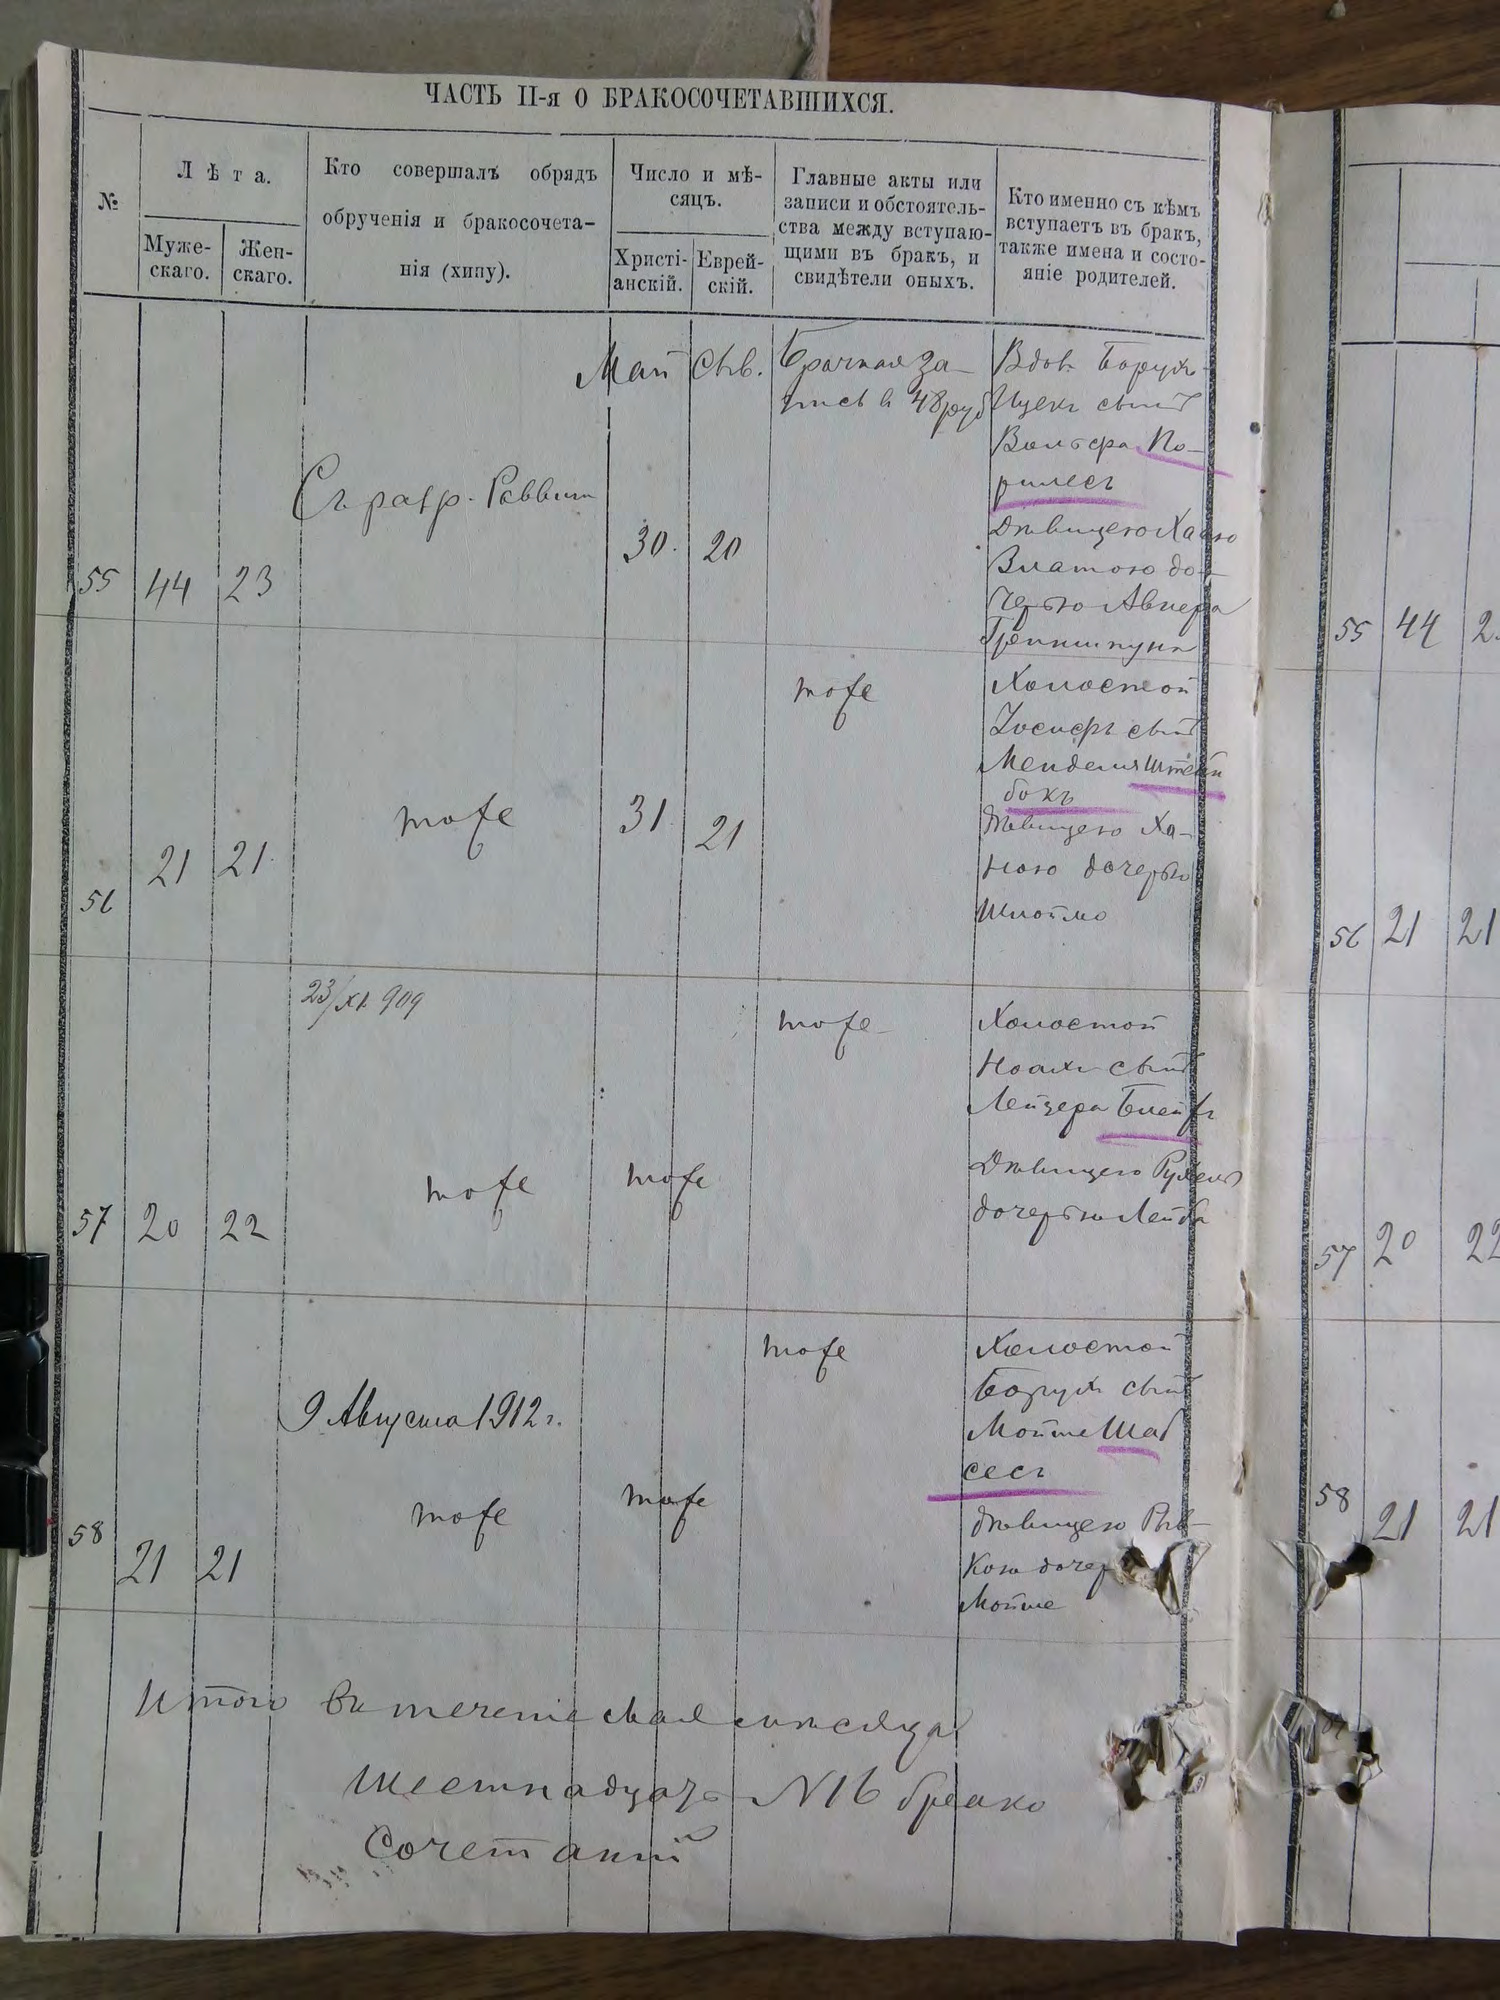 ЧАСТЬ II-я О БРАКОСОЧЕТАВШИХСЯ.
№
Лѣта.
Муже-
скаго.
Жен-
скаго.
Кто совершалъ обрядъ
обрученія и бракосочета-
нія (хипу).
Число и мѣ-
сяцъ.
Христі-
анскій.
Еврей-
скій.
Главные акты или
записи и обстоятель-
ства между вступаю-
щими въ бракъ, и
свидѣтели оныхъ.
Кто именно съ кѣмъ
вступаетъ въ бракъ,
также имена и состо-
яніе родителей.
55
44
23
Съ разр. Раввин
Май
30.
20
Брачная за-
пись в 48 руб
Вдов. Борухъ-
Ицекъ сынъ
Вольфа По-
рилесъ
Дѣвицею Хаею
Златою до-
черью Авнера
55 44
56
21
21
тоже
31
21
тоже
Холостой
Іосифъ сынъ
Менделя Штейн
бокъ
дѣвицею Ха-
ною дочерью
Шлоймо
56 21 21
57
20
22
23/XI 909
тоже
тоже
тоже
Холостой
Ноахъ сынъ
Лейзера
Дѣвицею Рухель
дочерью Лейба
57 20 22
58
21
21
9 Августа 1912 г.
тоже
тоже
тоже
Холостой
Борухъ сынъ
Мойше Шаб
сесъ
дѣвицею Рив-
кою дочер
Мойше
58 21 21
Итого въ теченіе мая мѣсяца
шестнадцать №16 брако
сочетаній